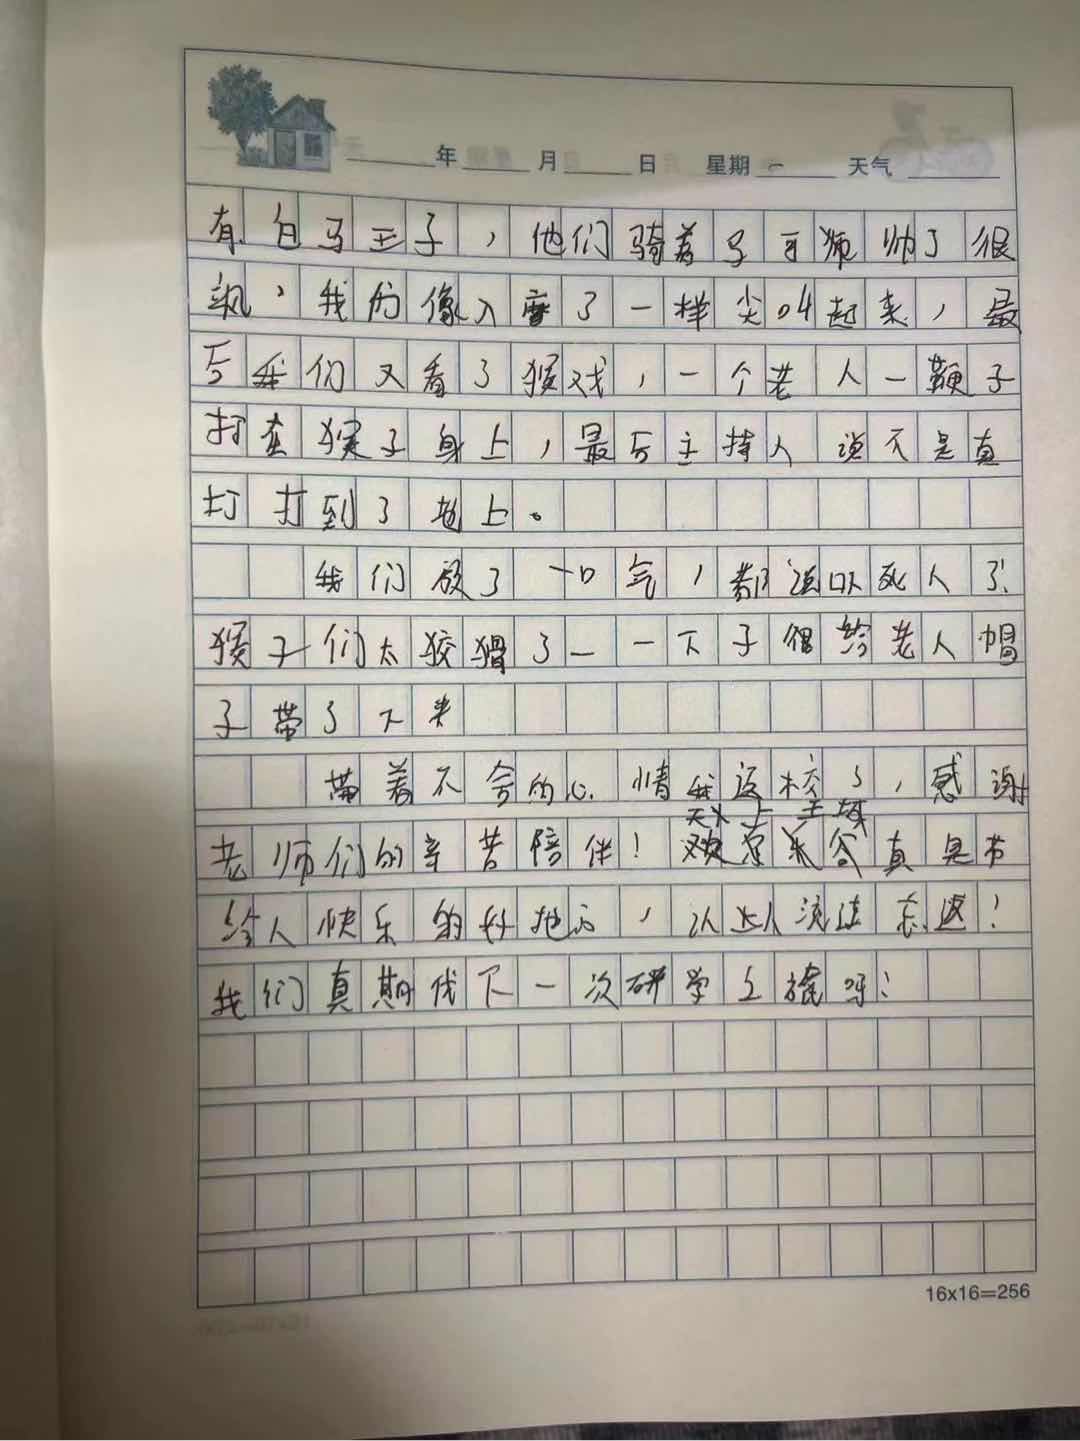 年 月 日 星期 天气
有白马王子，他们骑着马可 帅了很
，我们像入魔了一样尖叫起来，最
后我们又看了猴戏，一个老人一鞭子
打在猴子身上，最后主持人说不是真
打打到了地上。
我们放了一口气，都 死人了!
猴子们太狡猾了一一下子 给老人帽
子带了下来
带着不舍的心情我返校了，感谢
天上王城
老师们的辛苦陪伴！ 真是 
给人快乐的好地方，让人流连忘返！
我们真期待下一次研学之旅呀！
16x16=256